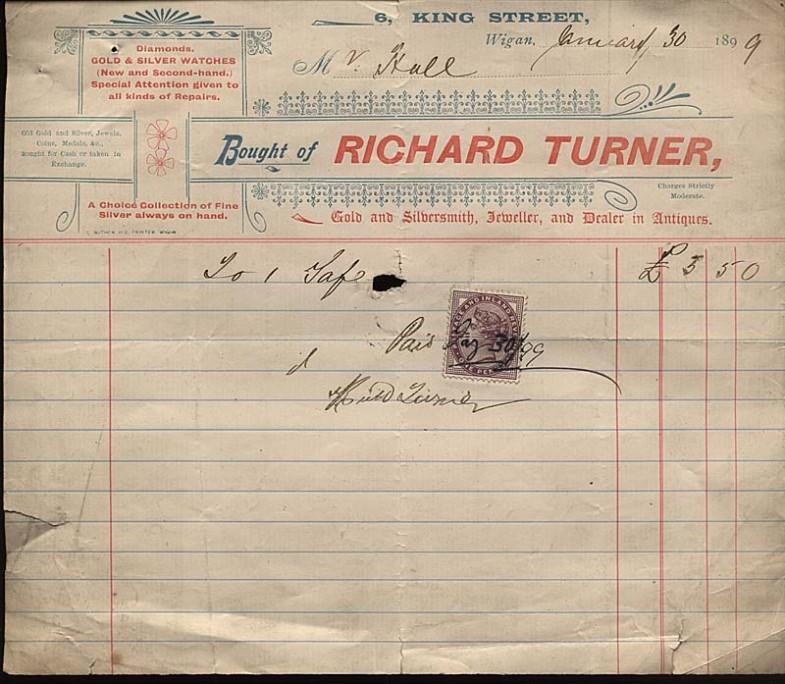 6, KING STREET,
Wigan, January 30 1899
Mr. Hall
Diamonds.
GOLD & SILVER WATCHES
(New and Second-hand.)
Special Attention given to
all kinds of Repairs.
Old Gold and Silver, Jewels,
Coins, Medals, &c.,
Bought for Cash or taken in
Exchange.
A Choice Collection of Fine
Silver always on hand.
Bought of RICHARD TURNER,
Charges Strictly
Moderate.
Gold and Silversmith, Jeweller, and Dealer in Antiques.
To 1 Safe £ 3 5 0
Paid 30/1/99
AND INLAND
ONE PENNY
Turner